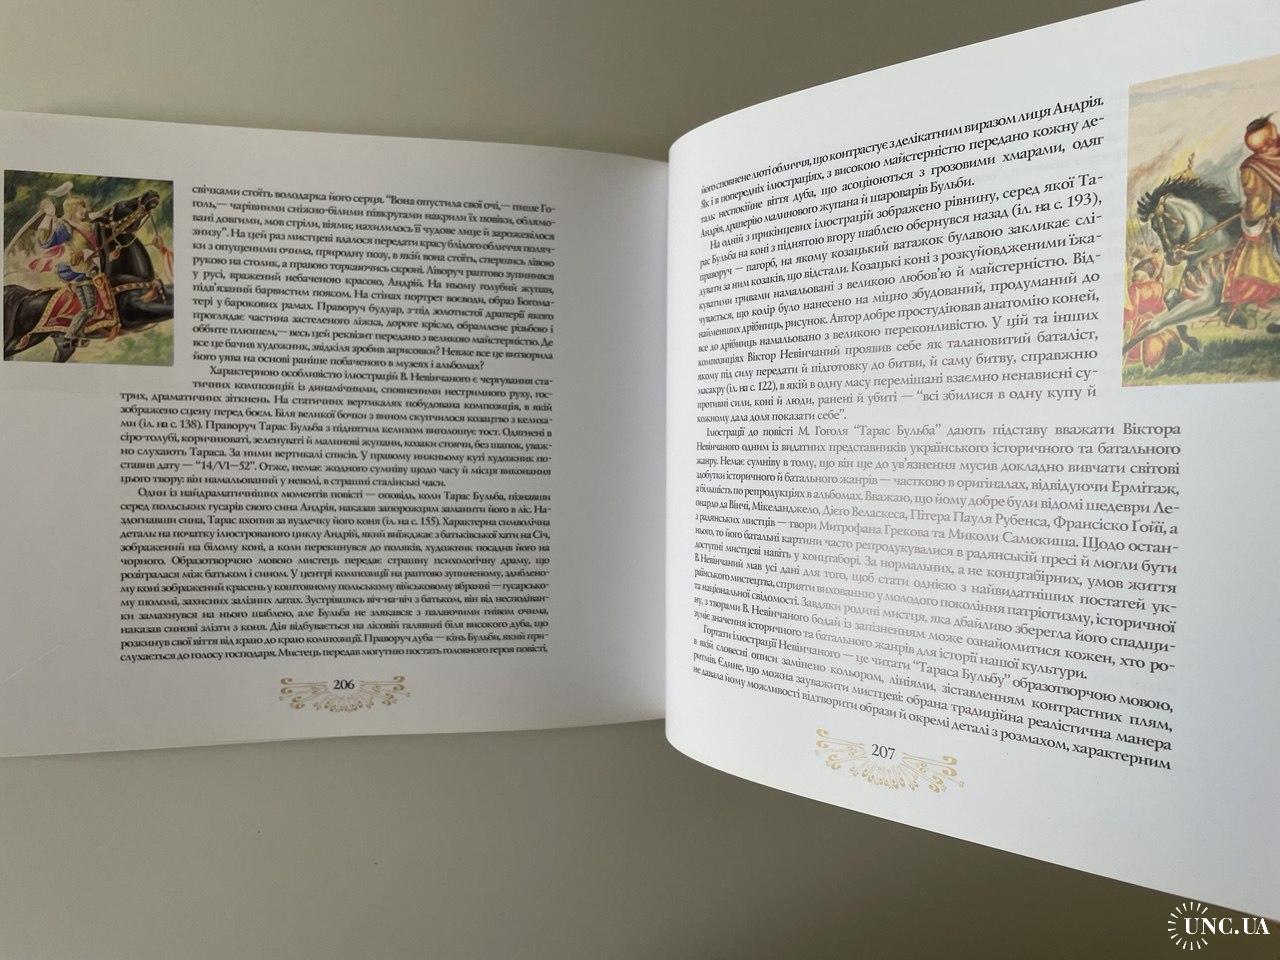 свічками стоїть володарка його серця. “Вона опустила свої очі,— пише Го-
голь,— чарівними сніжно-білими півкругами накрили їх повіки, облямо-
вані довгими, мов стріли, віями; нахилилось її чудове лице й зарожевілося
знизу”. На цей раз мистцеві вдалося передати красу блідого обличчя поляч-
ки з опущеними очима, природну позу, в якій вона стоїть, спершись лівою
рукою на столик, а правою торкаючись скроні. Ліворуч раптово зупинився
у русі, вражений небаченою красою, Андрій. На ньому голубий жупан,
підв'язаний барвистим поясом. На стінах портрет воєводи, образ Богома-
тері у барокових рамах. Праворуч будуар, з-під золотистої драперії якого
проглядає частина застеленого ліжка, дороге крісло, обрамлене різьбою і
оббите плюшем,— весь цей реквізит передано з великою майстерністю. Де
все це бачив художник, звідкіля зробив зарисовки? Невже все це витворила
його уява на основі раніше побаченого в музеях і альбомах?
Характерною особливістю ілюстрацій В. Невінчаного є чергування ста-
тичних композицій із динамічними, сповненими нестримного руху, гос-
трих, драматичних зіткнень. На статичних вертикалях побудована композиція, в якій
зображено сцену перед боєм. Біля великої бочки з вином скупчилося козацтво з келиха-
ми (іл. на с. 138). Праворуч Тарас Бульба з піднятим келихом виголошує тост. Одягнені в
сіро-голубі, коричнюваті, зеленуваті й малинові жупани, козаки стоячи, без шапок, уваж-
но слухають Тараса. За ними вертикалі списів. У правому нижньому куті художник по-
ставив дату — “14/VI—52”. Отже, немає жодного сумніву щодо часу й місця виконання
цього твору: він намальований у неволі, в страшні сталінські часи.
Один із найдраматичніших моментів повісті — оповідь, коли Тарас Бульба, пізнавши
серед польських гусарів свого сина Андрія, наказав запорожцям заманити його в ліс. На-
здогнавши сина, Тарас вхопив за вуздечку його коня (іл. на с. 155). Характерна символічна
деталь на початку ілюстрованого циклу Андрій, який виїжджає з батьківської хати на Січ,
зображений на білому коні, а коли перекинувся до поляків, художник посадив його на
чорного. Образотворчою мовою мистець передає страшну психологічну драму, що
розігралася між батьком і сином. У центрі композиції на раптово зупиненому, здиблено-
му коні зображений красень у коштовному польському військовому вбранні — гусарсько-
му шоломі, захисних залізних латах. Зустрівшись віч-на-віч з батьком, він від несподіван-
ки замахнувся на нього шаблею, але Бульба не злякався з палаючими гнівом очима,
наказав синові злізти з коня. Дія відбувається на лісовій галявині біля високого дуба, що
розкинув свої віття від краю до краю композиції. Праворуч дуба — кінь Бульби, який при-
слухається до голосу господаря. Мистець передав могутню постать головного героя повісті,
206
його сповнене люті обличчя, що контрастує з делікатним виразом лиця Андрія.
Як і в попередніх ілюстраціях, з високою майстерністю передано кожну де-
таль: неспокійне віття дуба, що асоціюються з грозовими хмарами, одяг
Андрія, драперію малинового жупана й шароварів Бульби.
На одній з прикінцевих ілюстрацій зображено рівнину, серед якої Та-
рас Бульба на коні з піднятою вгору шаблею обернувся назад (іл. на с. 193),
праворуч — пагорб, на якому козацький ватажок булавою закликає слі-
дувати за ним козаків, що відстали. Козацькі коні з розкуйовдженими їжа-
куватими гривами намальовані з великою любов'ю й майстерністю. Від-
чувається, що колір було нанесено на міцно збудований, продуманий до
найменших дрібниць, рисунок. Автор добре простудіював анатомію коней,
все до дрібниць намальовано з великою переконливістю. У цій та інших
композиціях Віктор Невінчаний проявив себе як талановитий баталіст,
якому під силу передати й підготовку до битви, й саму битву, справжню
масакру (іл. на с. 122), в якій в одну масу перемішані взаємно ненависні су-
противні сили, коні й люди, ранені й убиті — “всі збилися в одну купу й
кожному дала доля показати себе”.
Ілюстрації до повісті М. Гоголя “Тарас Бульба” дають підставу вважати Віктора
Невінчаного одним із видатних представників українського історичного та батального
жанру. Немає сумніву в тому, що він ще до ув'язнення мусив докладно вивчати світові
здобутки історичного й батального жанрів — частково в оригіналах, відвідуючи Ермітаж,
а більшість по репродукціях в альбомах. Вважаю, що йому добре були відомі шедеври Ле-
онардо да Вінчі, Мікеланджело, Дієго Веласкеса, Пітера Пауля Рубенса, Франсіско Ґойї, а
з радянських мистців — твори Митрофана Грекова та Миколи Самокиша. Щодо остан-
нього, то його батальні картини часто репродукувалися в радянській пресі й могли бути
доступні мистцеві навіть у концтаборі. За нормальних, а не концтабірних, умов життя
В. Невінчаний мав усі дані для того, щоб стати однією з найвидатніших постатей ук-
раїнського мистецтва, сприяти вихованню у молодого покоління патріотизму, історичної
та національної свідомості. Завдяки родині мистця, яка дбайливо зберегла його спадщи-
ну, з творами В. Невінчаного бодай із запізненням може ознайомитися кожен, хто ро-
зуміє значення історичного та батального жанрів для історії нашої культури.
Гортати ілюстрації Невінчаного — це читати “Тараса Бульбу” образотворчою мовою,
в якій словесні описи замінено кольором, лініями, зіставленням контрастних плям,
ритмів. Єдине, що можна зауважити мистцеві: обрана традиційна реалістична манера
не давала йому можливості відтворити образи й окремі деталі з розмахом, характерним
207
UNC.UA